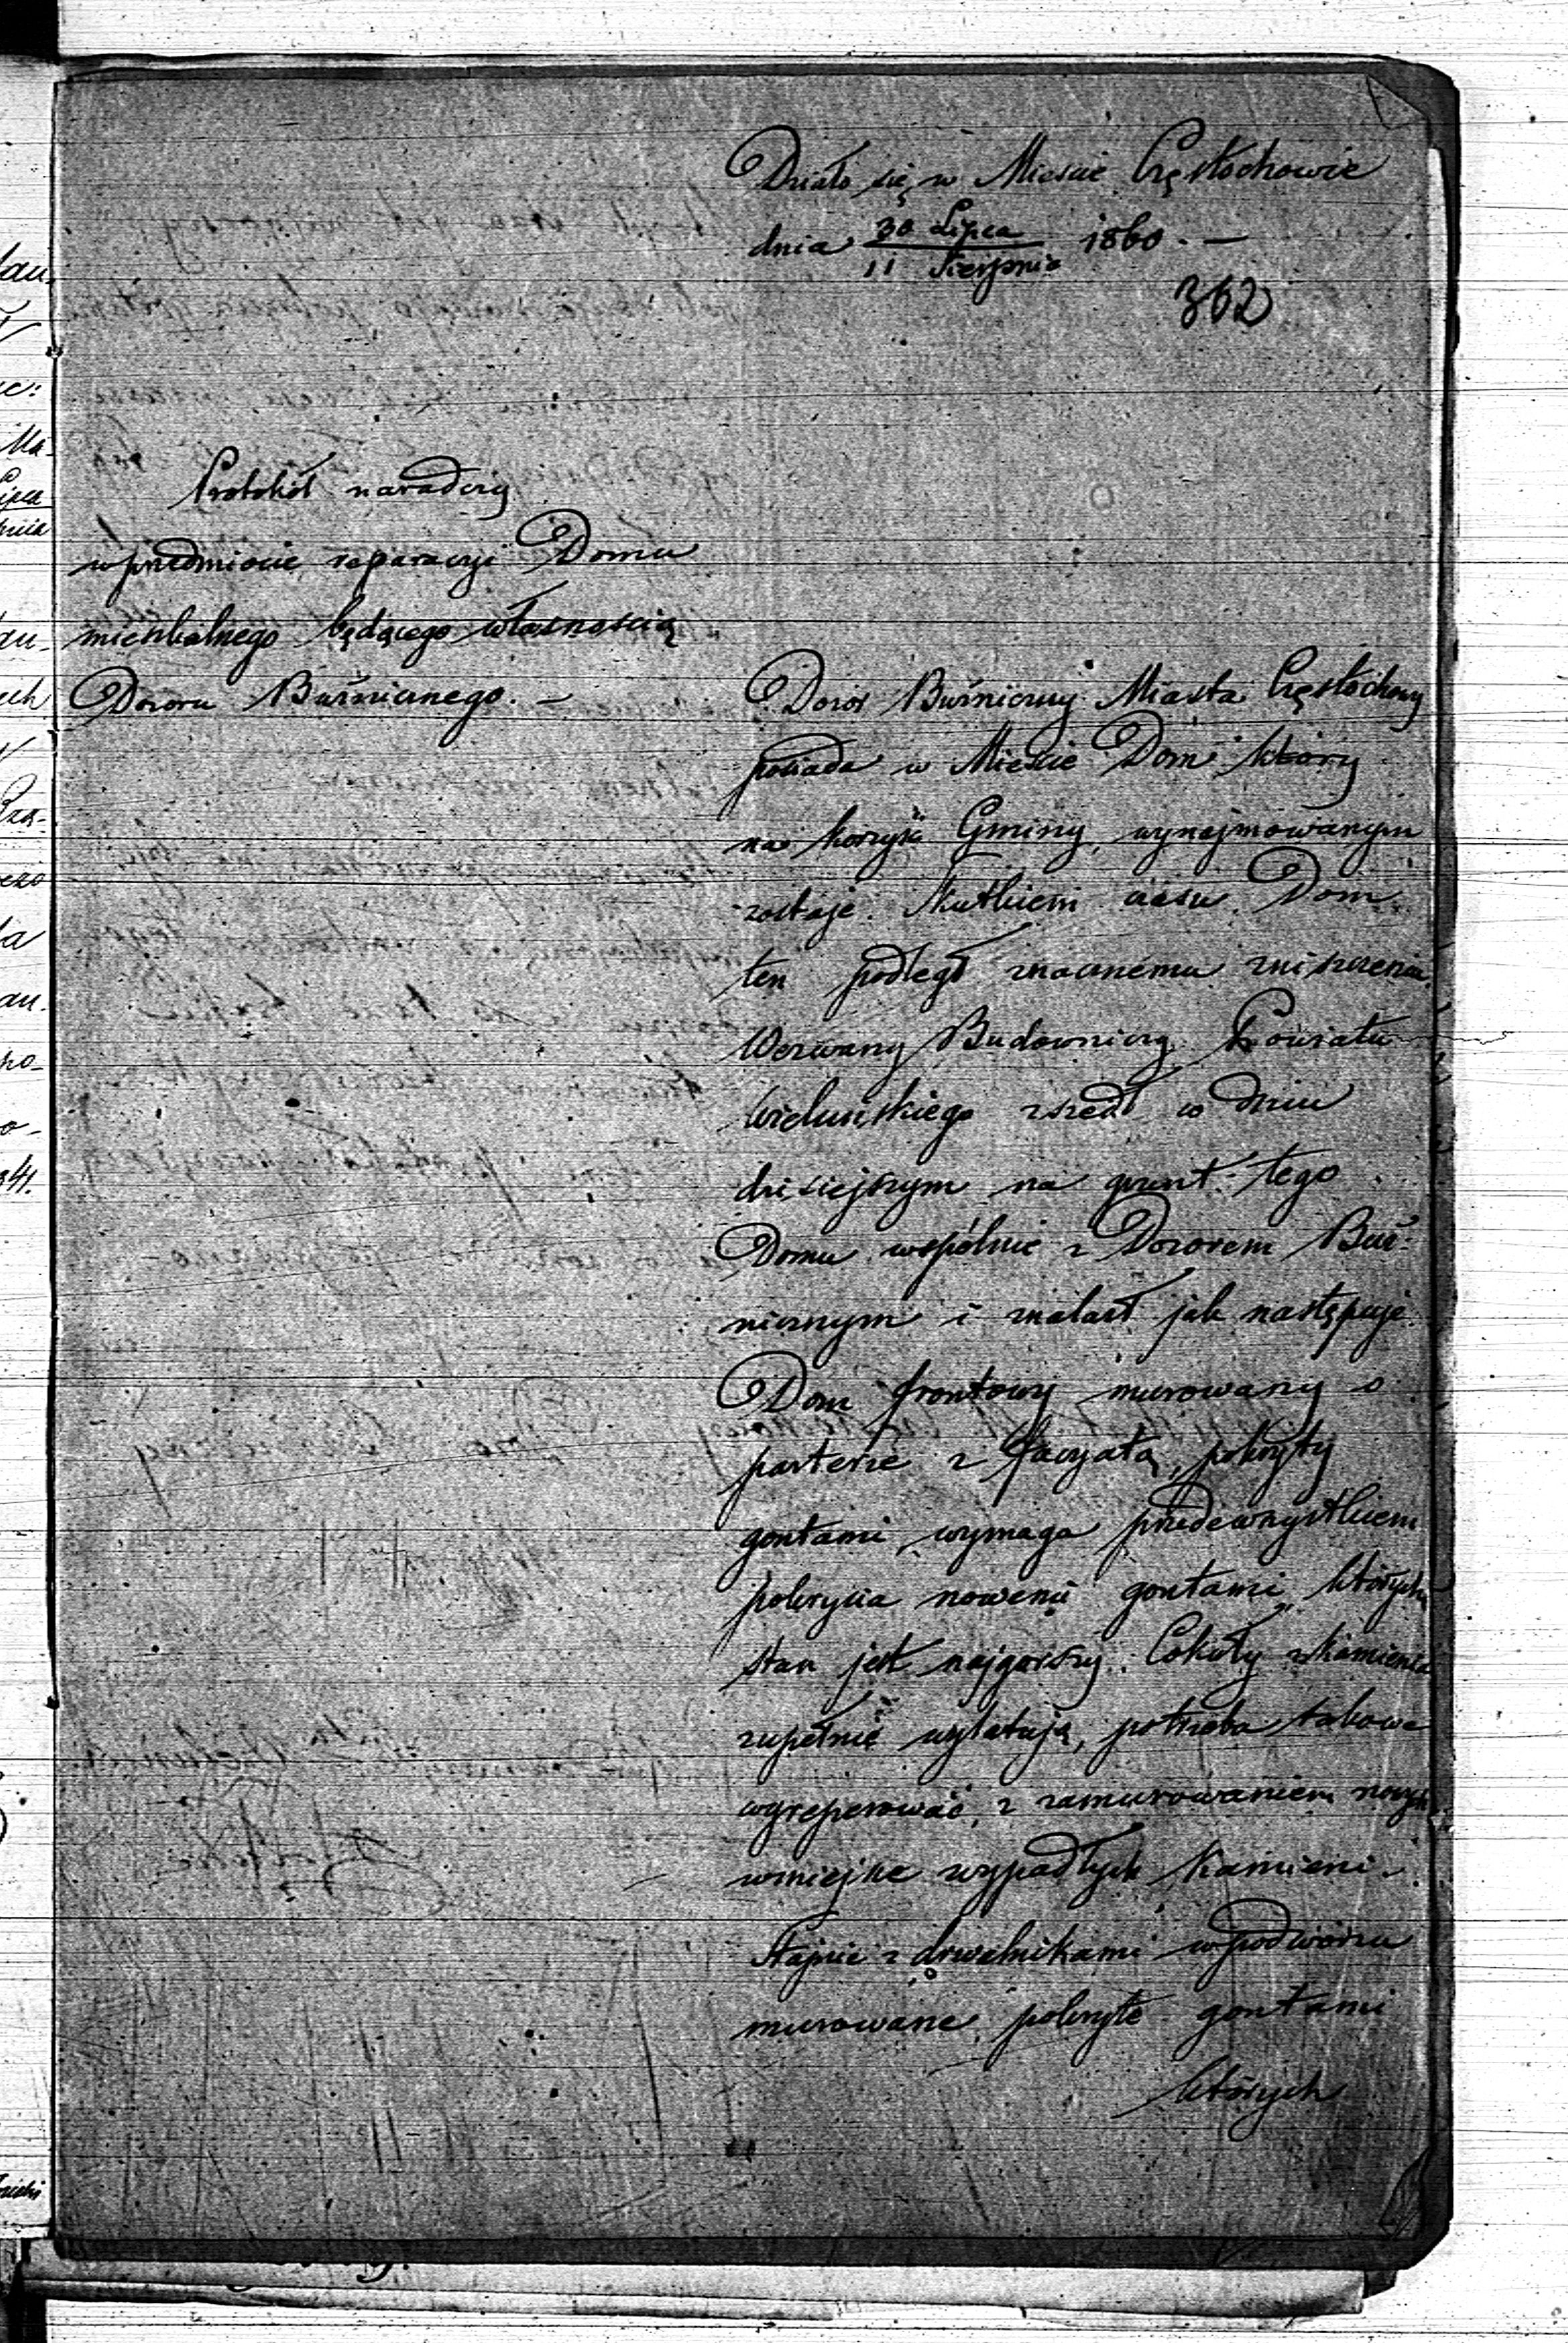 Działo się w Mieście Częstochowie
dnia 30 Lipca / 11 Sierpnia 1860. —
362
Protokół naradczy
w przedmiocie reparacyi Domu
mieszkalnego będącego własnością
Dozoru Bużnicznego. —
Dozór Bużniczny Miasta Częstochowy
posiada w Mieście Dom który
na korzyść Gminy, wynajmowanym
zostaje. Skutkiem czasu Dom
ten podległ znacznemu zniszczeniu
Wezwany Budowniczy Powiatu
Wieluńskiego zszedł w dniu
dzisiejszym na grunt tego
Domu wspólnie z Dozorem Buż-
nicznym i znalazł jak następuje
Dom frontowy murowany o
parterze z facyatą, pokryty
gontami wymaga przedewszystkiem
pokrycia nowemi gontami, których
stan jest najgorszy. Cokuły z kamienia
zupełnie wylatają, potrzeba takowe
wyreperować, z zamurowaniem nowych
wmiejsce wypadłych kamieni.
Stajnie z drwalnikami w podwórzu
murowane pokryte gontami
których